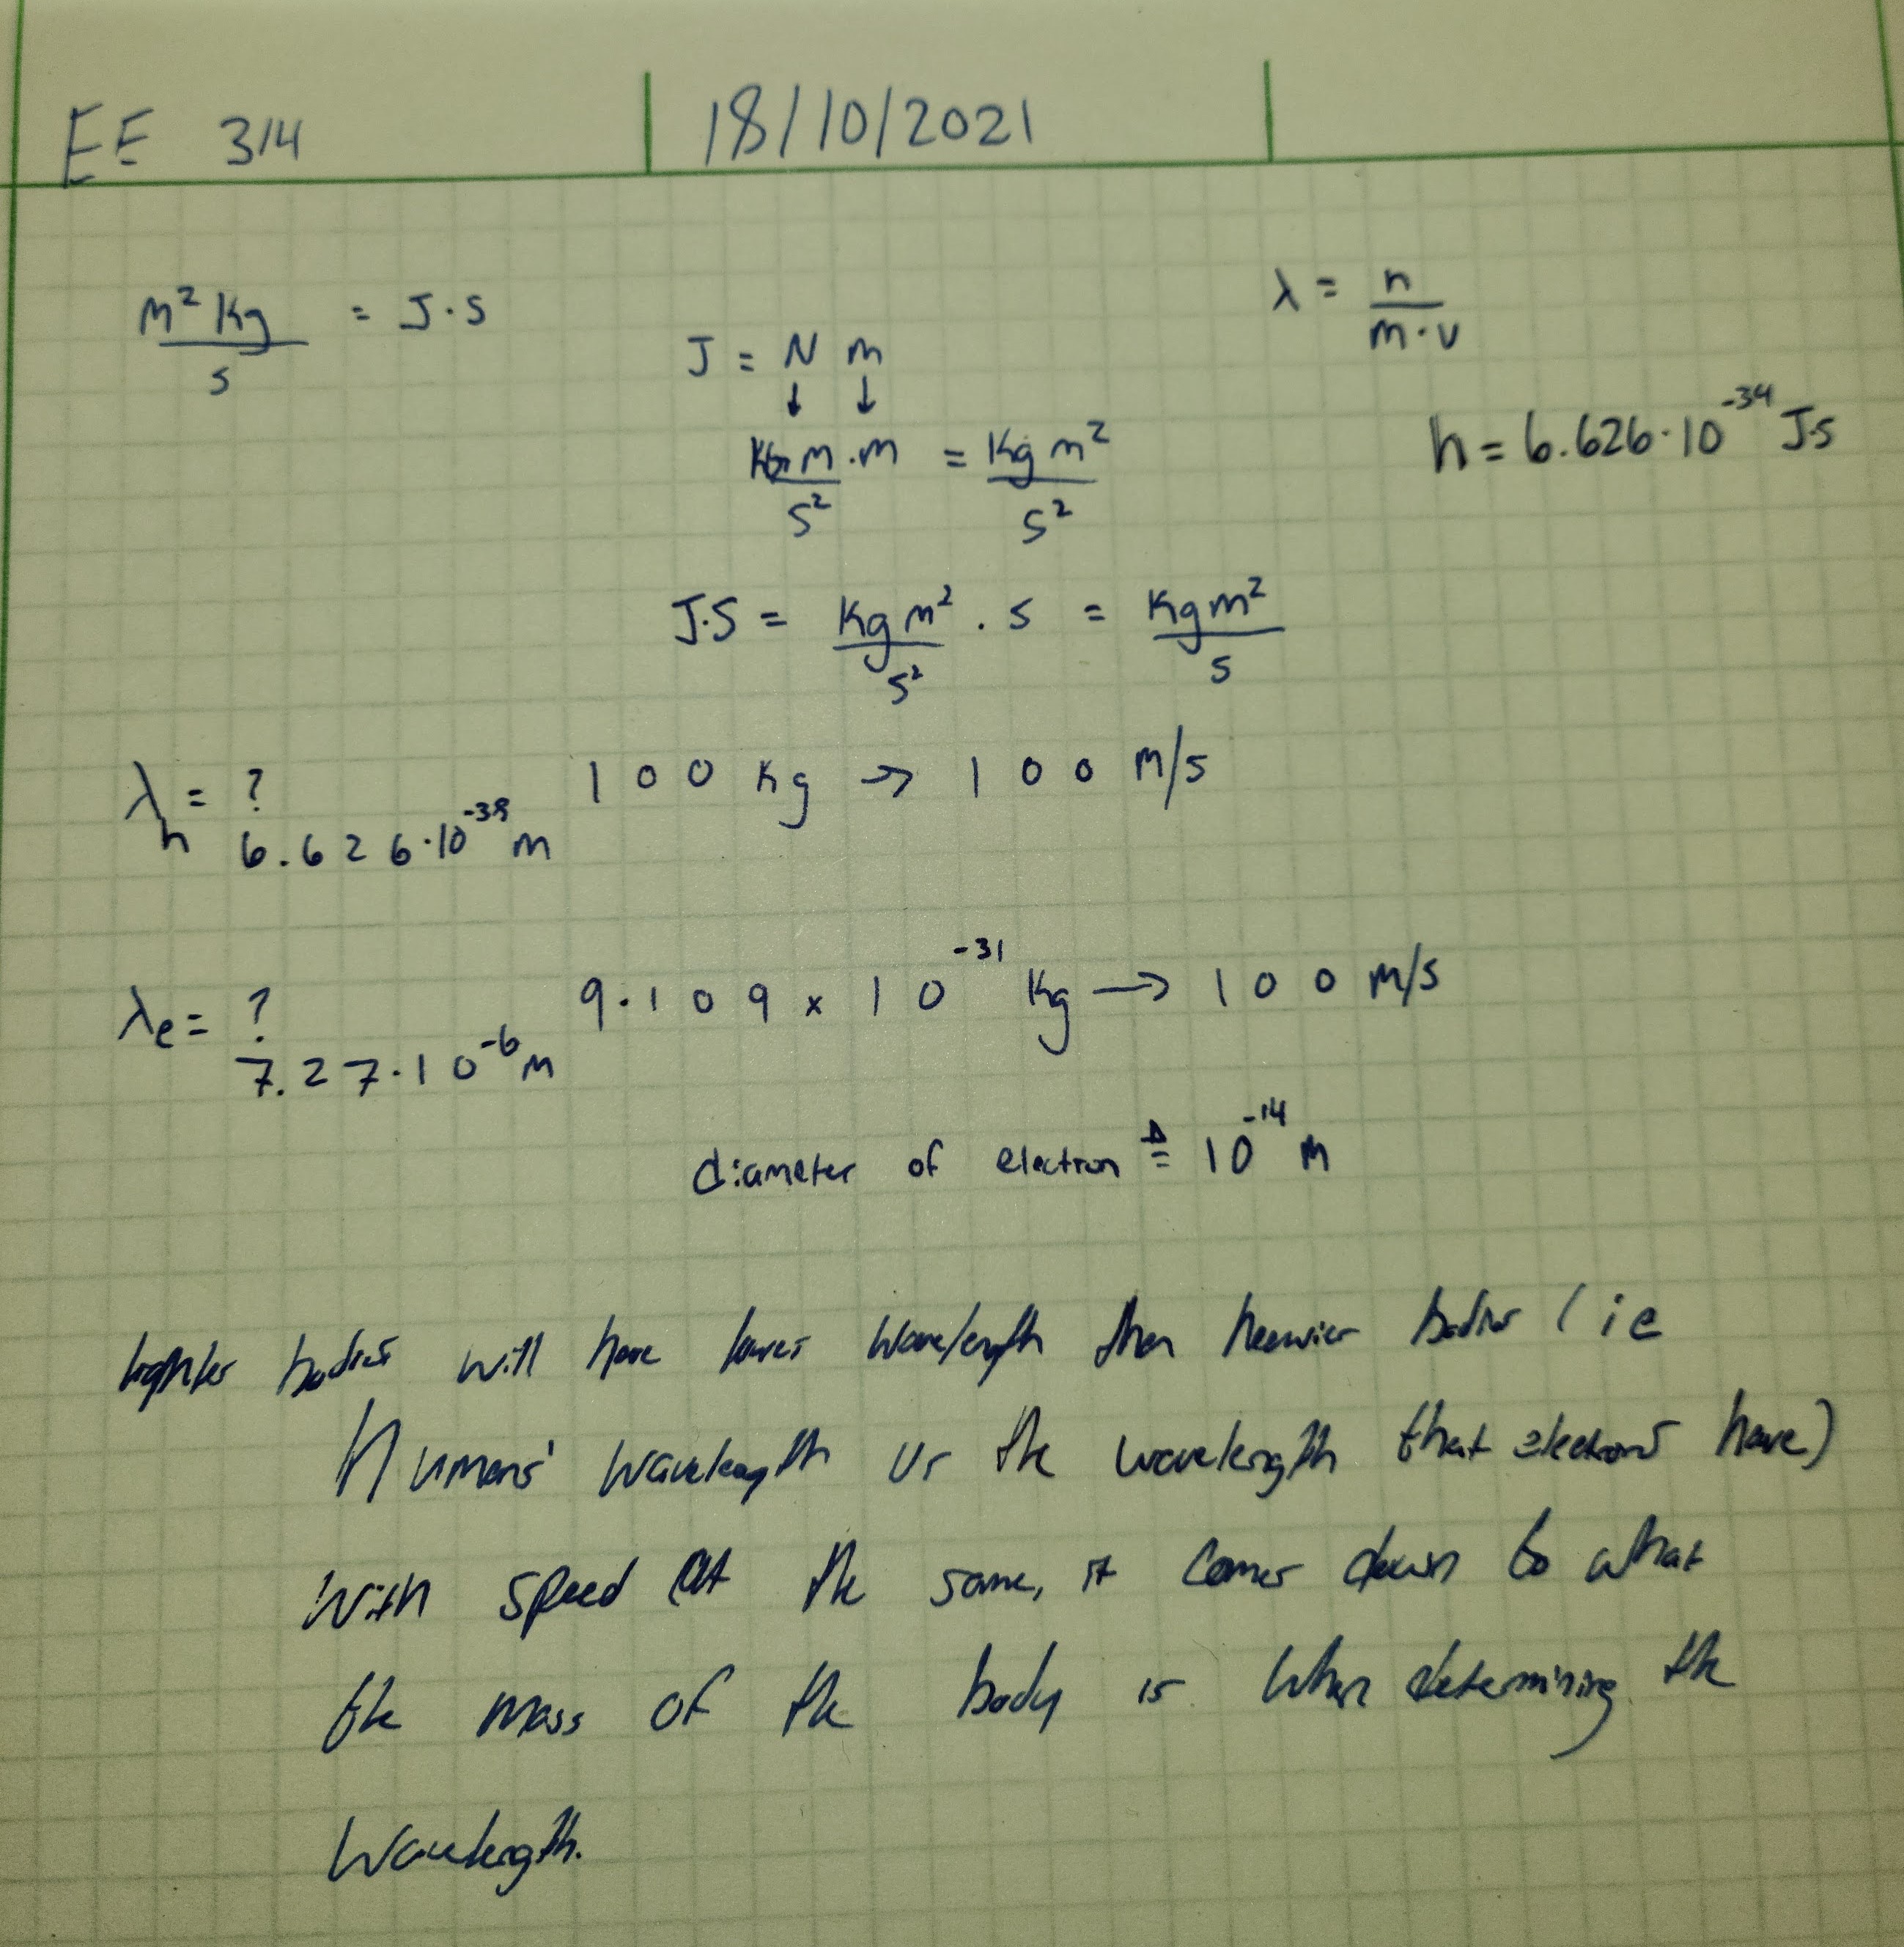 EE 314 18/10/2021
m² kg / s = J·s
λ = h / m·v
J = N m
↓ ↓
kg m / s² · m = kg m² / s²
h = 6.626·10⁻³⁴ J·s
J·s = kg m² / s² · s = kg m² / s
λh = ? 100 kg → 100 m/s
6.626·10⁻³⁸ m
λe = ? 9.109 x 10⁻³¹ kg → 100 m/s
7.27·10⁻⁶ m
diameter of electron ≜ 10⁻¹⁴ m
lighter bodies will have wavelength than heavier bodies (ie
Humans' wavelength vs the wavelength that electrons have)
With speed at the same, it comes down to what
the mass of the body is when determining the
wavelength.